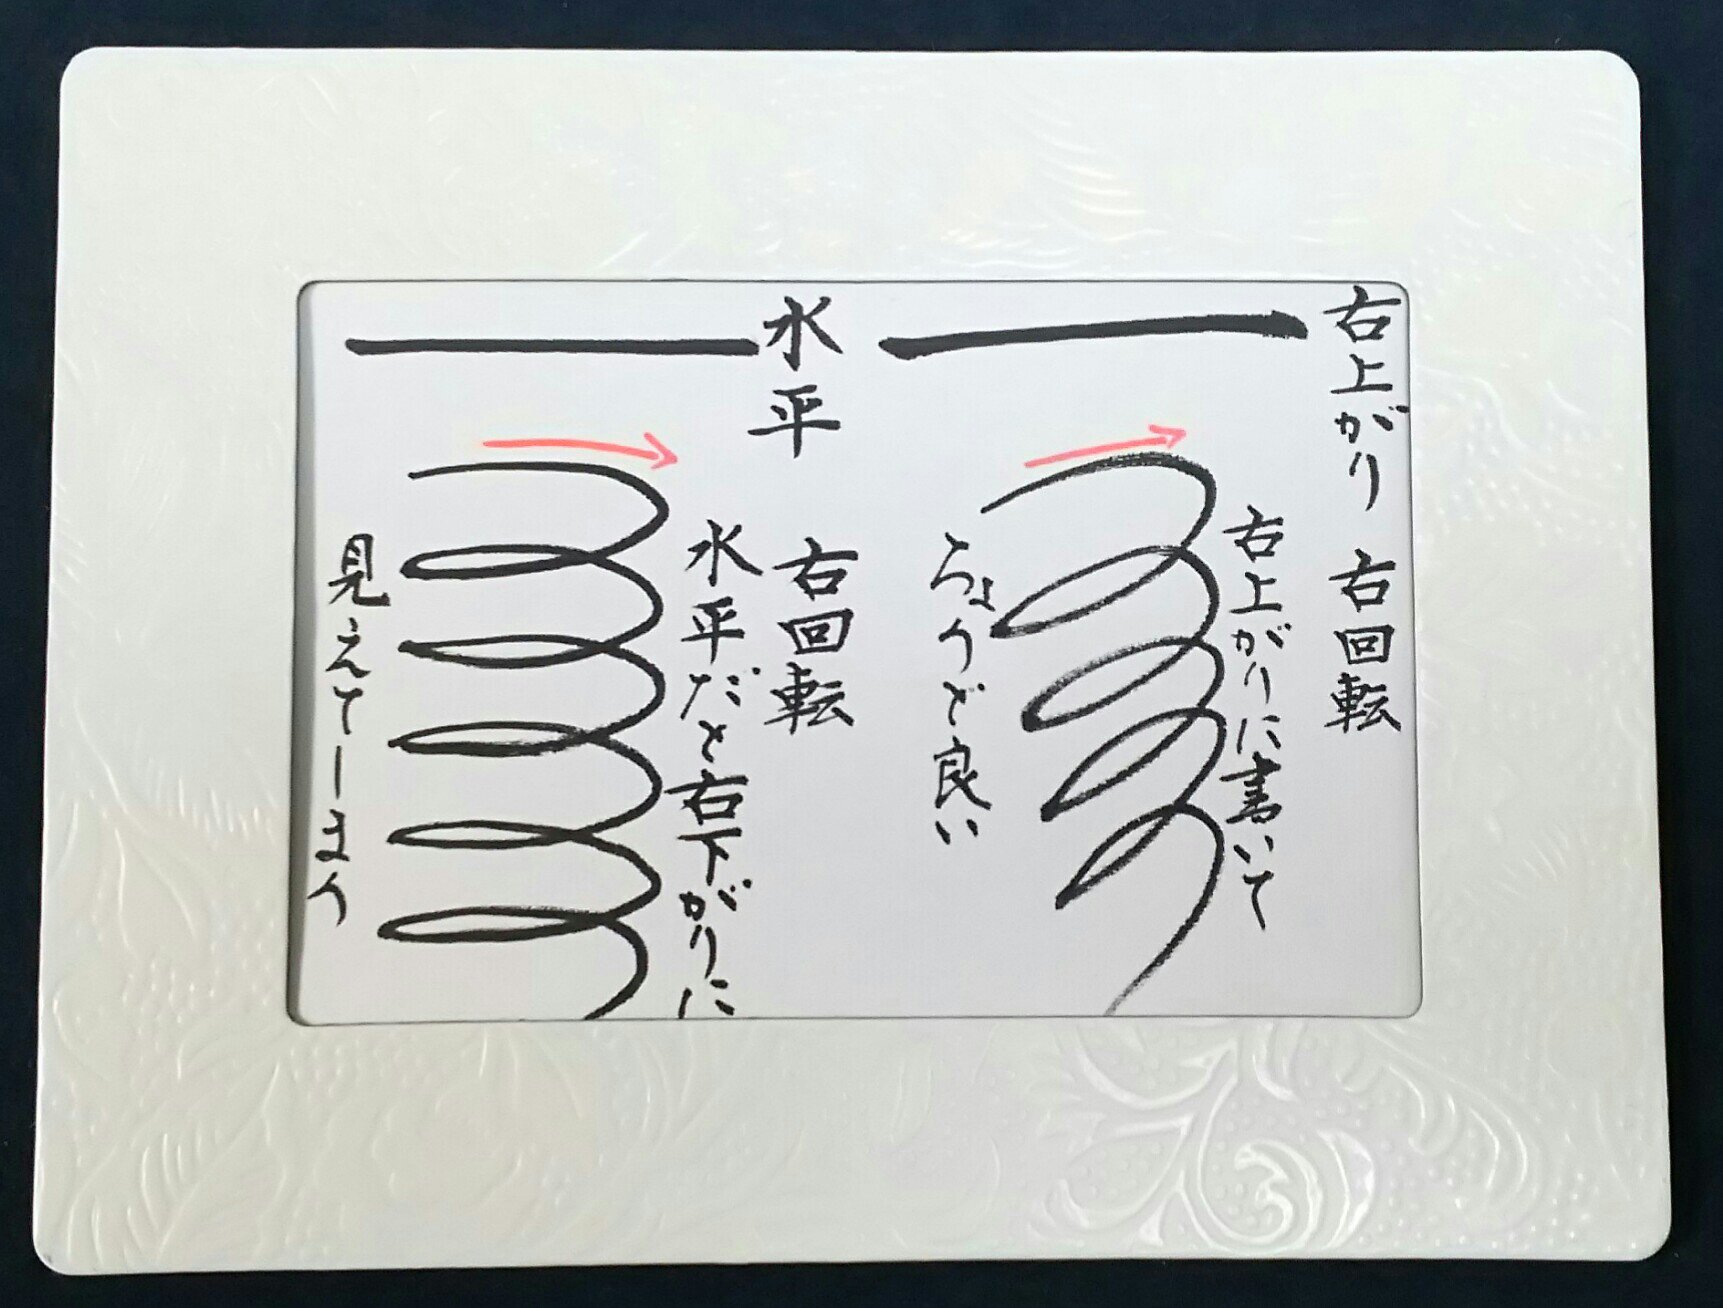 右上がり 右回転
右上がりに書いて
ちょうど良い
水平 右回転
水平だと右下がりに
見えてしまう